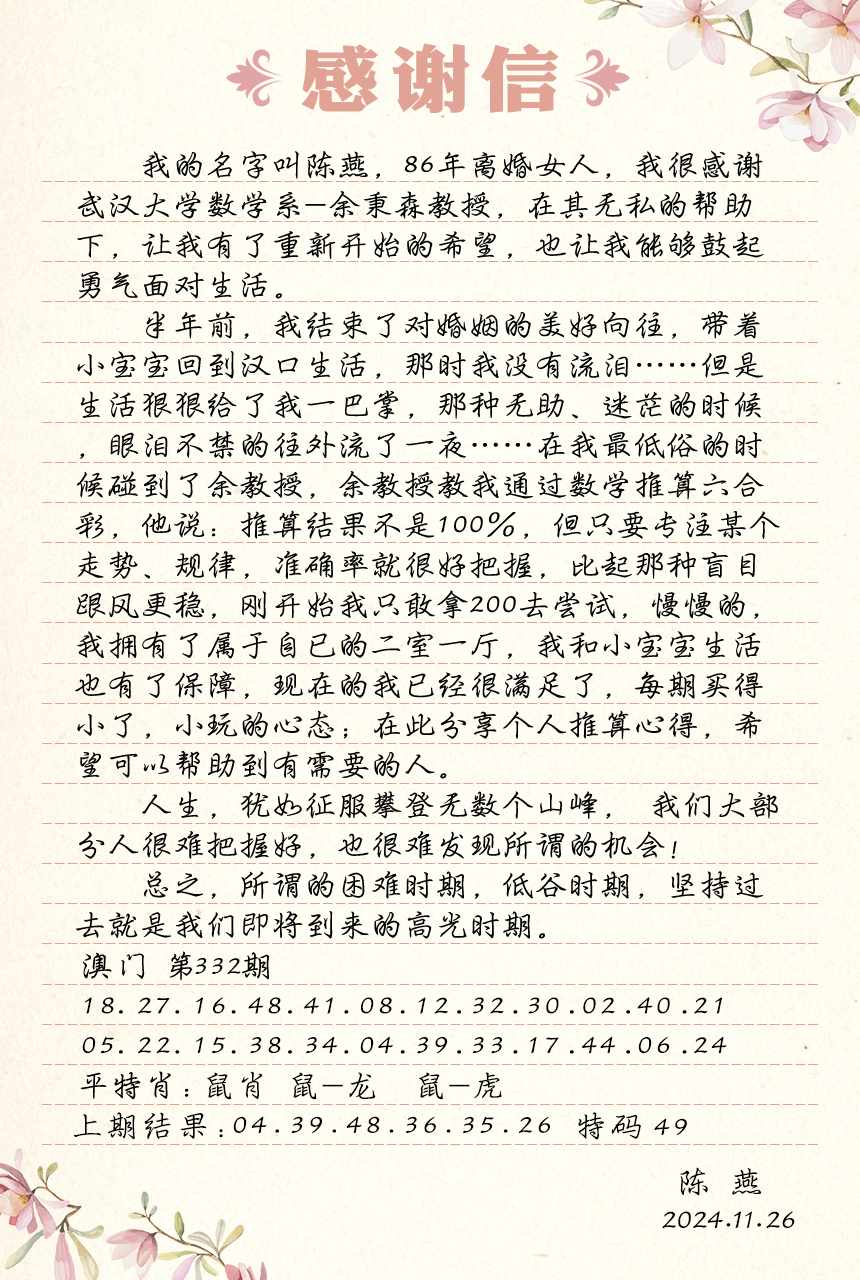 感谢信
我的名字叫陈燕，86年离婚女人，我很感谢
武汉大学数学系—余秉森教授，在其无私的帮助
下，让我有了重新开始的希望，也让我能够鼓起
勇气面对生活。
半年前，我结束了对婚姻的美好向往，带着
小宝宝回到汉口生活，那时我没有流泪……但是
生活狠狠给了我一巴掌，那种无助、迷茫的时候
，眼泪不禁的往外流了一夜……在我最低俗的时
候碰到了余教授，余教授教我通过数学推算六合
彩，他说：推算结果不是100%，但只要专注某个
走势、规律，准确率就很好把握，比起那种盲目
跟风更稳，刚开始我只敢拿200去尝试，慢慢的，
我拥有了属于自已的二室一厅，我和小宝宝生活
也有了保障，现在的我已经很满足了，每期买得
小了，小玩的心态；在此分享个人推算心得，希
望可以帮助到有需要的人。
人生，犹如征服攀登无数个山峰， 我们大部
分人很难把握好，也很难发现所谓的机会！
总之，所谓的困难时期，低谷时期，坚持过
去就是我们即将到来的高光时期。
澳门 第332期
18.27.16.48.41.08.12.32.30.02.40.21
05.22.15.38.34.04.39.33.17.44.06.24
平特肖：鼠肖 鼠—龙 鼠—虎
上期结果：04.39.48.36.35.26 特码 49
陈 燕
2024.11.26